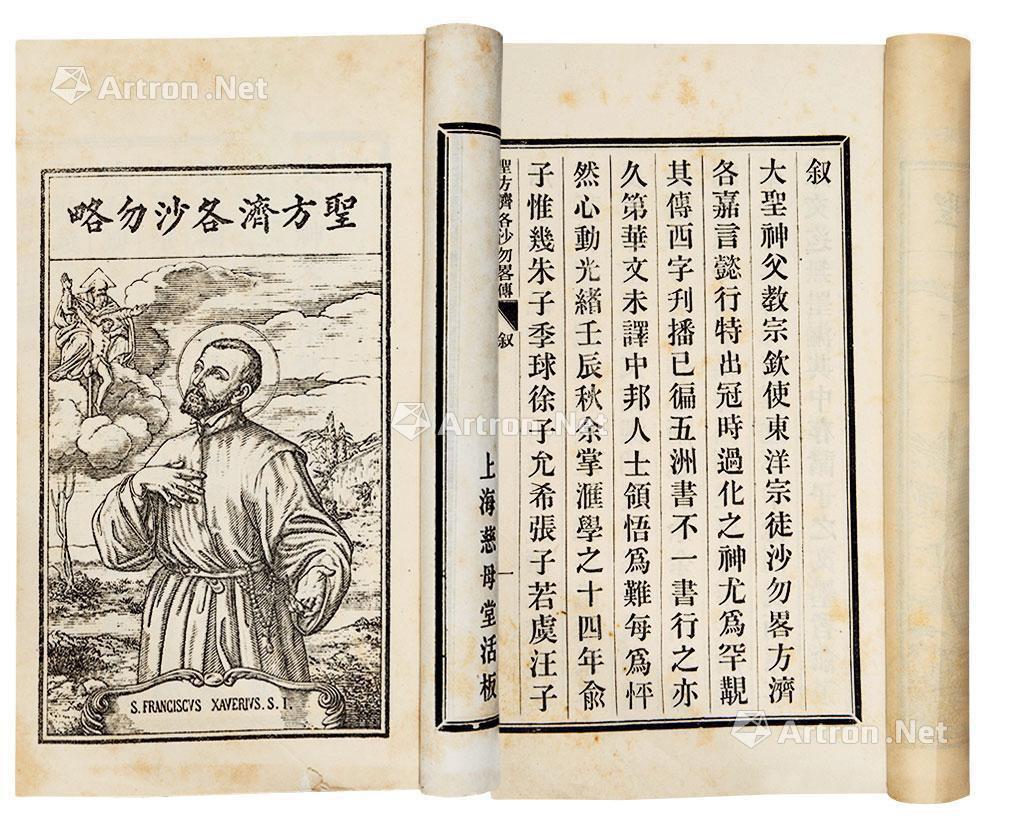 叙
大聖神父教宗欽使東洋宗徒沙勿畧方濟
各嘉言懿行特出冠時過化之神尤爲罕覯
其傳西字刋播已徧五洲書不一書行之亦
久第華文未譯中邦人士領悟爲難每爲怦
然心動光緒壬辰秋余掌滙學之十四年俞
子惟幾朱子季球徐子允希張子若虞汪子
聖方濟各沙勿畧傳
叙
一
上海慈母堂活板
聖方濟各沙勿略
S. FRANCISCVS XAVERIVS. S. I.
Artron.Net
Artron.Net
Artron.Net